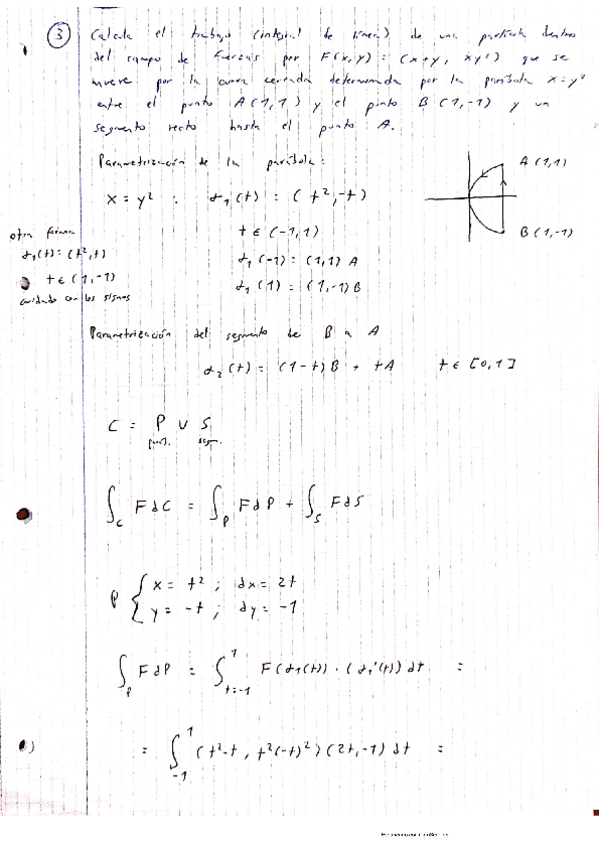 3 Calcula el trabajo (integral de línea) de una partícula dentro
del campo de fuerzas por F(x,y) = (x+y, xy²) que se
mueve por la curva cerrada determinada por la parábola x=y²
entre el punto A(1,1) y el punto B(1,-1) y un
segmento recto hasta el punto A.
Parametrización de la parábola:
A (1,1)
x = y² : α₁(t) = (t²,-t)
B (1,-1)
t ∈ (-1,1)
otra forma
α₁(t) = (t²,t)
t ∈ (1,-1)
cuidado con los signos
α₁(-1) = (1,1) A
α₁(1) = (1,-1) B
Parametrización del segmento de B a A
α₂(t) = (1-t)B + tA t ∈ [0,1]
C = P ∪ S
parab. segm.
∫_C FdC = ∫_P FdP + ∫_S FdS
P { x = t² ; dx = 2t
y = -t ; dy = -1
∫_P FdP = ∫_{t=-1}^{1} F(α₁(t)) · (α₁'(t)) dt =
= ∫_{-1}^{1} (t²-t, t²(-t)²)(2t,-1) dt =